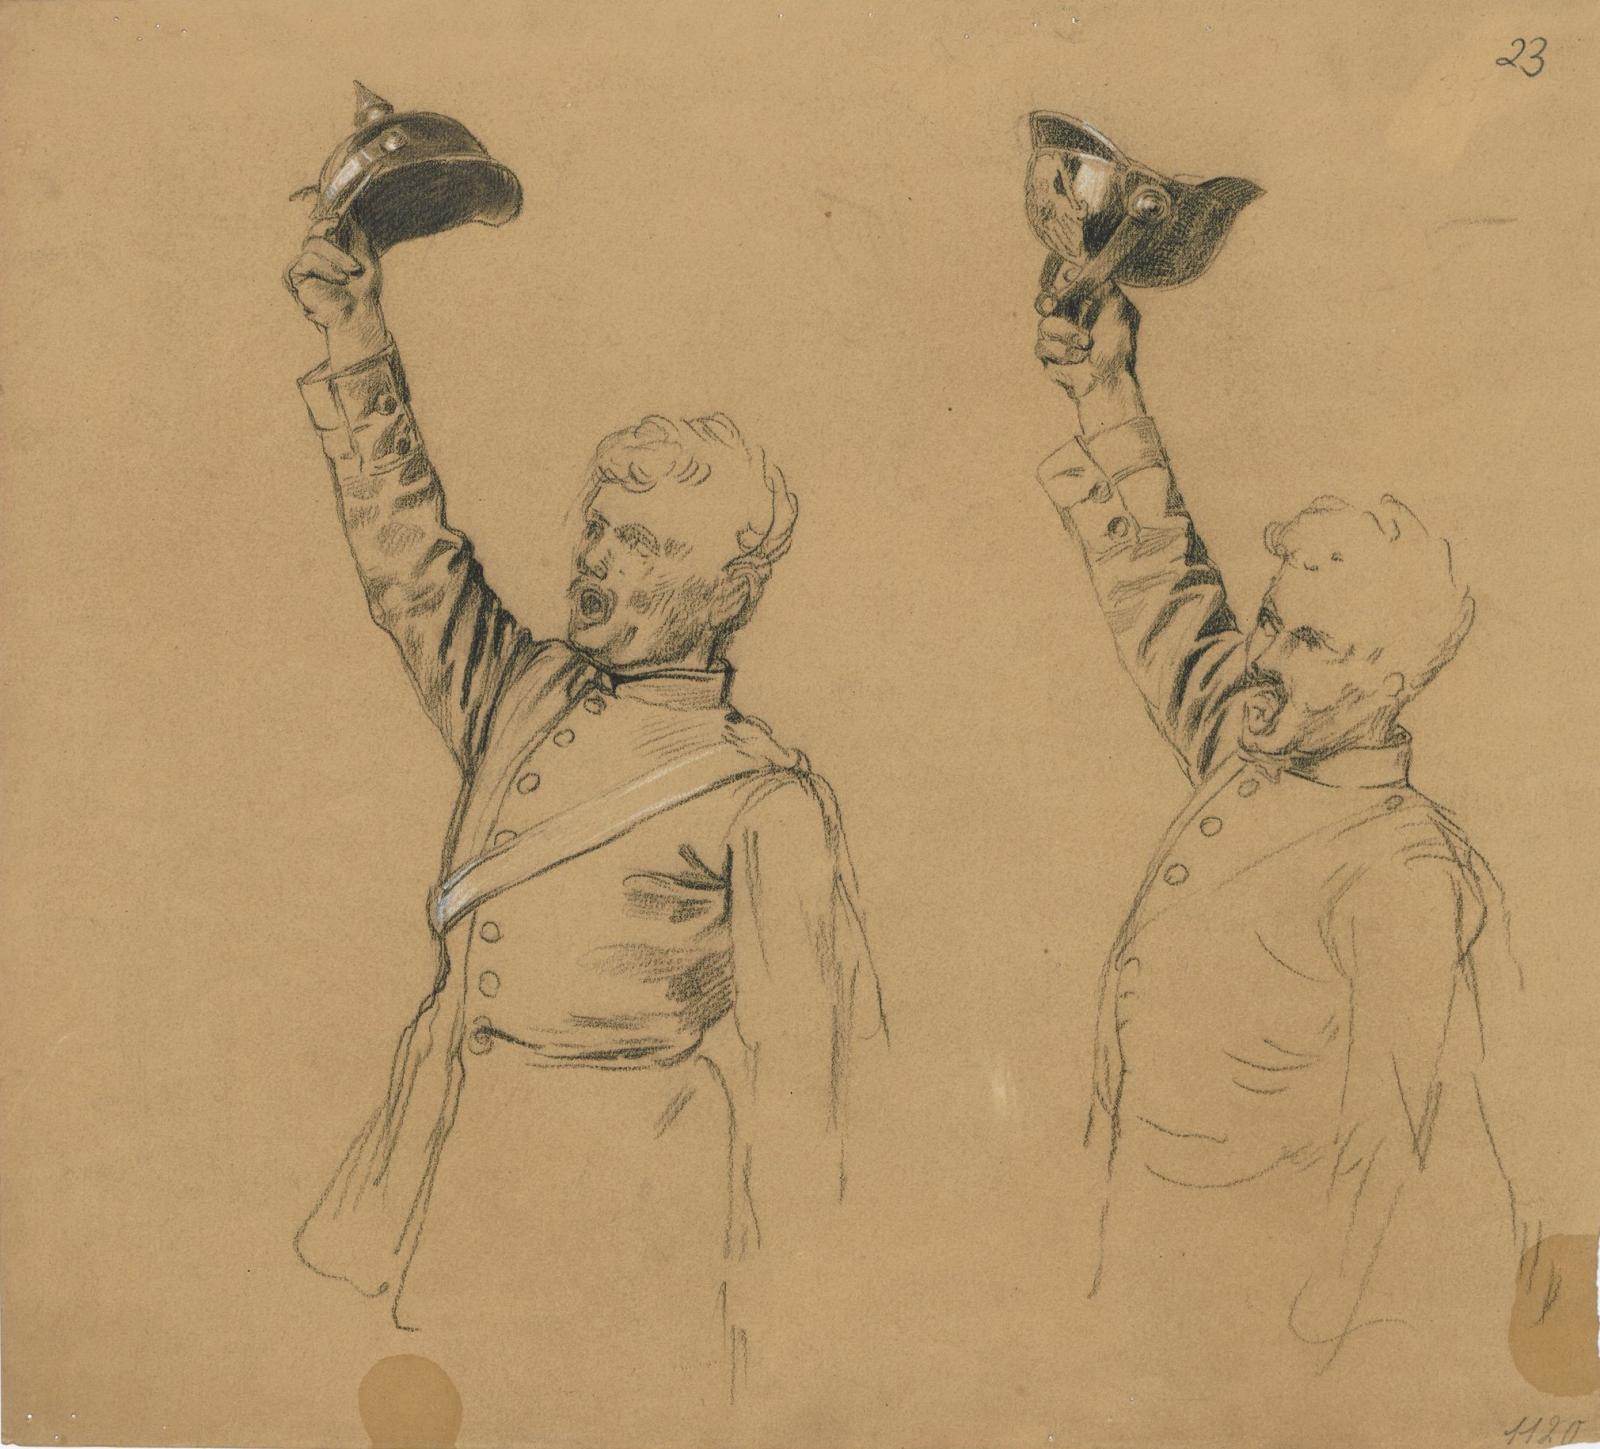 23
1120